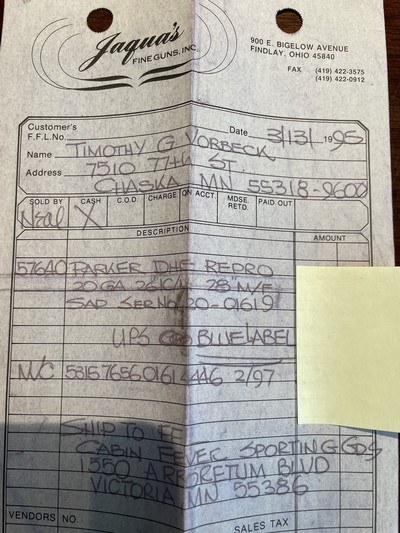 Jaqua's
FINE GUNS, INC.
900 E. BIGELOW AVENUE
FINDLAY, OHIO 45840
FAX (419) 422-3575
(419) 422-0912
Customer's
F.F.L. No.
Date 3/31 1995
Name TIMOTHY G VORBECK
Address 7510 77th ST.
CHASKA MN 55318-9600
SOLD BY CASH C.O.D. CHARGE ON ACCT. MDSE. RETD. PAID OUT
Neal X
DESCRIPTION AMOUNT
57640 PARKER DHE REPRO
20 GA 28" M/F
SER No 20-01619
UPS BLUE LABEL
M/C 2/97
SHIP TO
CABIN FEVER SPORTING GDS
1550 ARBORETUM BLVD
VICTORIA MN 55386
VENDORS NO.
SALES TAX